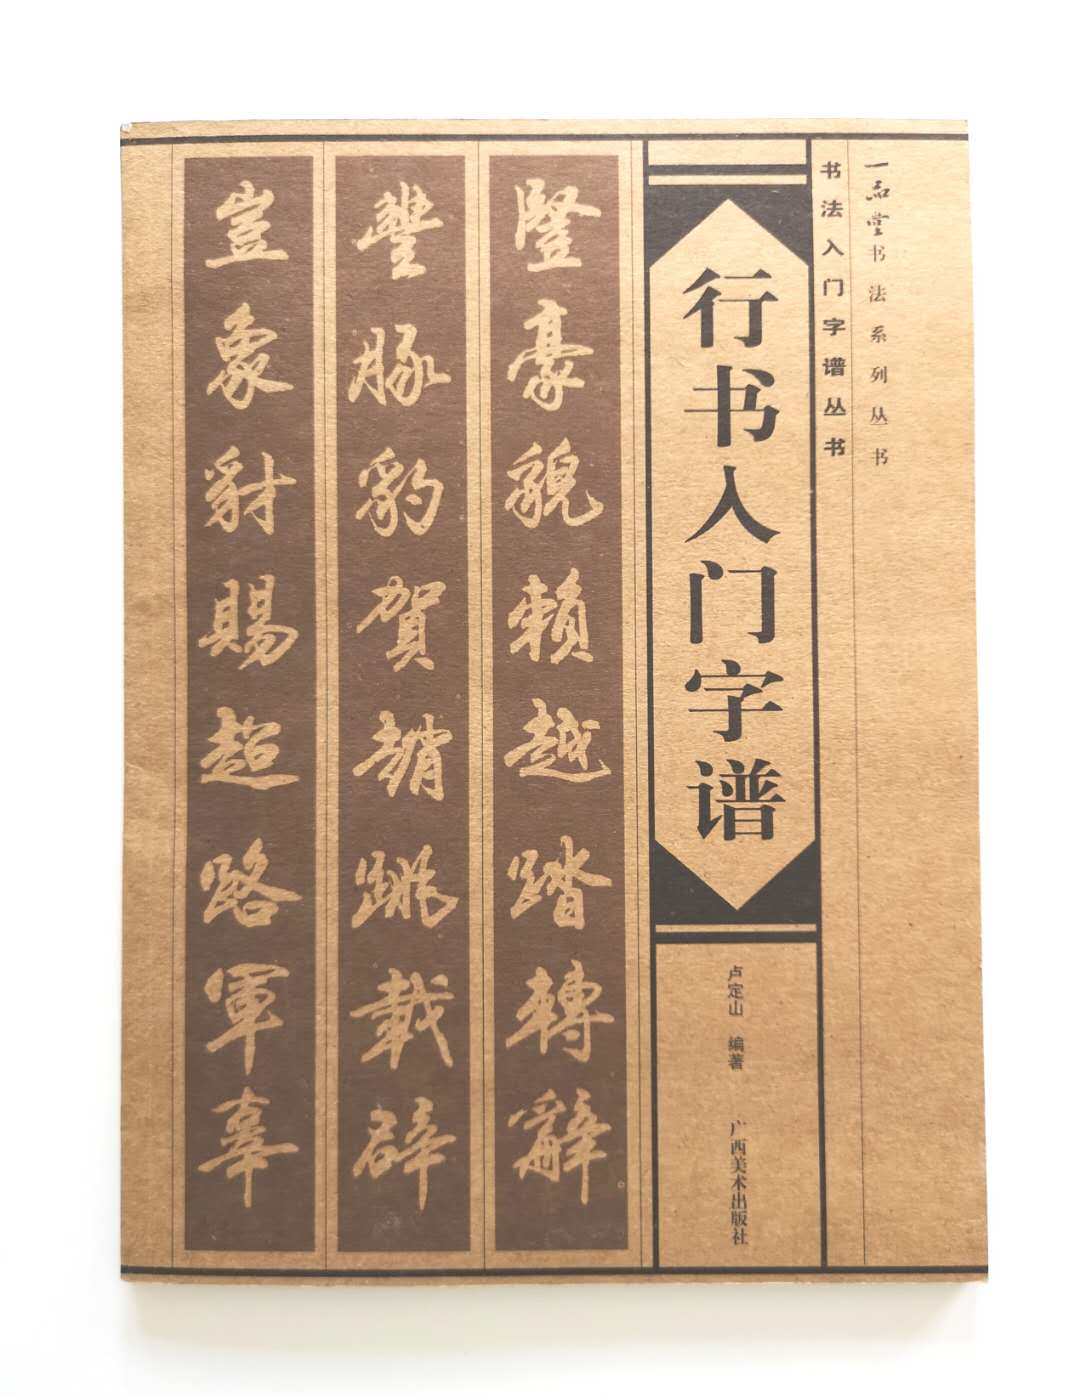 一品堂书法系列丛书
书法入门字谱丛书
行书入门字谱
卢定山 编著
广西美术出版社
豎豪貌赖越踏轉辭
豐豚豹賀趙跳載辟
豈象豺賜超路軍辜